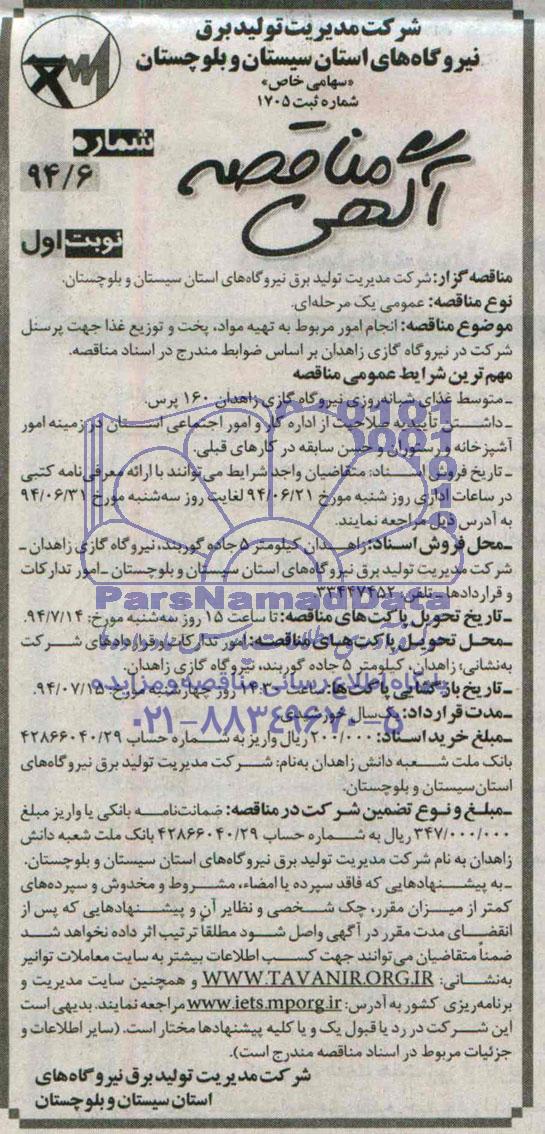 شرکت مدیریت تولید برق
نیروگاه‌های استان سیستان و بلوچستان
«سهامی خاص»
شماره ثبت ۱۷۰۵
آگهی مناقصه
شماره
۹۴/۶
نوبت اول
مناقصه گزار: شرکت مدیریت تولید برق نیروگاه‌های استان سیستان و بلوچستان.
نوع مناقصه: عمومی یک مرحله‌ای.
موضوع مناقصه: انجام امور مربوط به تهیه مواد، پخت و توزیع غذا جهت پرسنل
شرکت در نیروگاه گازی زاهدان بر اساس ضوابط مندرج در اسناد مناقصه.
مهم ترین شرایط عمومی مناقصه
ـ متوسط غذای شبانه‌روزی نیروگاه گازی زاهدان ۱۶۰ پرس.
ـ داشتن تأییدیه صلاحیت از اداره کار و امور اجتماعی استان در زمینه امور
آشپزخانه و رستوران و حسن سابقه در کارهای قبلی.
ـ تاریخ فروش اسناد: متقاضیان واجد شرایط می‌توانند با ارائه معرفی‌نامه کتبی
در ساعات اداری روز شنبه مورخ ۹۴/۰۶/۲۱ لغایت روز سه‌شنبه مورخ ۹۴/۰۶/۳۱
به آدرس ذیل مراجعه نمایند.
ـ محل فروش اسناد: زاهدان کیلومتر ۵ جاده گوربند، نیروگاه گازی زاهدان ـ
شرکت مدیریت تولید برق نیروگاه‌های استان سیستان و بلوچستان ـ امور تدارکات
و قراردادها ـ تلفن: ۳۳۴۴۷۴۵۲.
ـ تاریخ تحویل پاکت‌های مناقصه: تا ساعت ۱۵ روز سه‌شنبه مورخ: ۹۴/۷/۱۴.
ـ محل تحویل پاکت‌های مناقصه: امور تدارکات و قراردادهای شرکت
به‌نشانی: زاهدان، کیلومتر ۵ جاده گوربند، نیروگاه گازی زاهدان.
ـ تاریخ بازگشایی پاکت‌ها: ساعت روز چهارشنبه مورخ ۹۴/۰۷/۱۵.
ـ مدت قرارداد: یک‌سال خورشیدی.
ـ مبلغ خرید اسناد: ۲۰۰/۰۰۰ ریال واریز به شماره حساب ۴۲۸۶۶۰۴۰/۲۹
بانک ملت شعبه دانش زاهدان به‌نام: شرکت مدیریت تولید برق نیروگاه‌های
استان سیستان و بلوچستان.
ـ مبلغ و نوع تضمین شرکت در مناقصه: ضمانت‌نامه بانکی یا واریز مبلغ
۳۴۷/۰۰۰/۰۰۰ ریال به شماره حساب ۴۲۸۶۶۰۴۰/۲۹ بانک ملت شعبه دانش
زاهدان به نام شرکت مدیریت تولید برق نیروگاه‌های استان سیستان و بلوچستان.
ـ به پیشنهادهایی که فاقد سپرده یا امضاء، مشروط و مخدوش و سپرده‌های
کمتر از میزان مقرر، چک شخصی و نظایر آن و پیشنهادهایی که پس از
انقضای مدت مقرر در آگهی واصل شود مطلقاً ترتیب اثر داده نخواهد شد
ضمناً متقاضیان می‌توانند جهت کسب اطلاعات بیشتر به سایت معاملات توانیر
به‌نشانی: WWW.TAVANIR.ORG.IR و همچنین سایت مدیریت و
برنامه‌ریزی کشور به آدرس: www.iets.mporg.ir مراجعه نمایند. بدیهی است
این شرکت در رد یا قبول یک و یا کلیه پیشنهادها مختار است. (سایر اطلاعات و
جزئیات مربوط در اسناد مناقصه مندرج است).
شرکت مدیریت تولید برق نیروگاه‌های
استان سیستان و بلوچستان
ParsNamadData
پایگاه اطلاع رسانی مناقصه و مزایده
۰۲۱-۸۸۳۴۹۶۷۰-۵